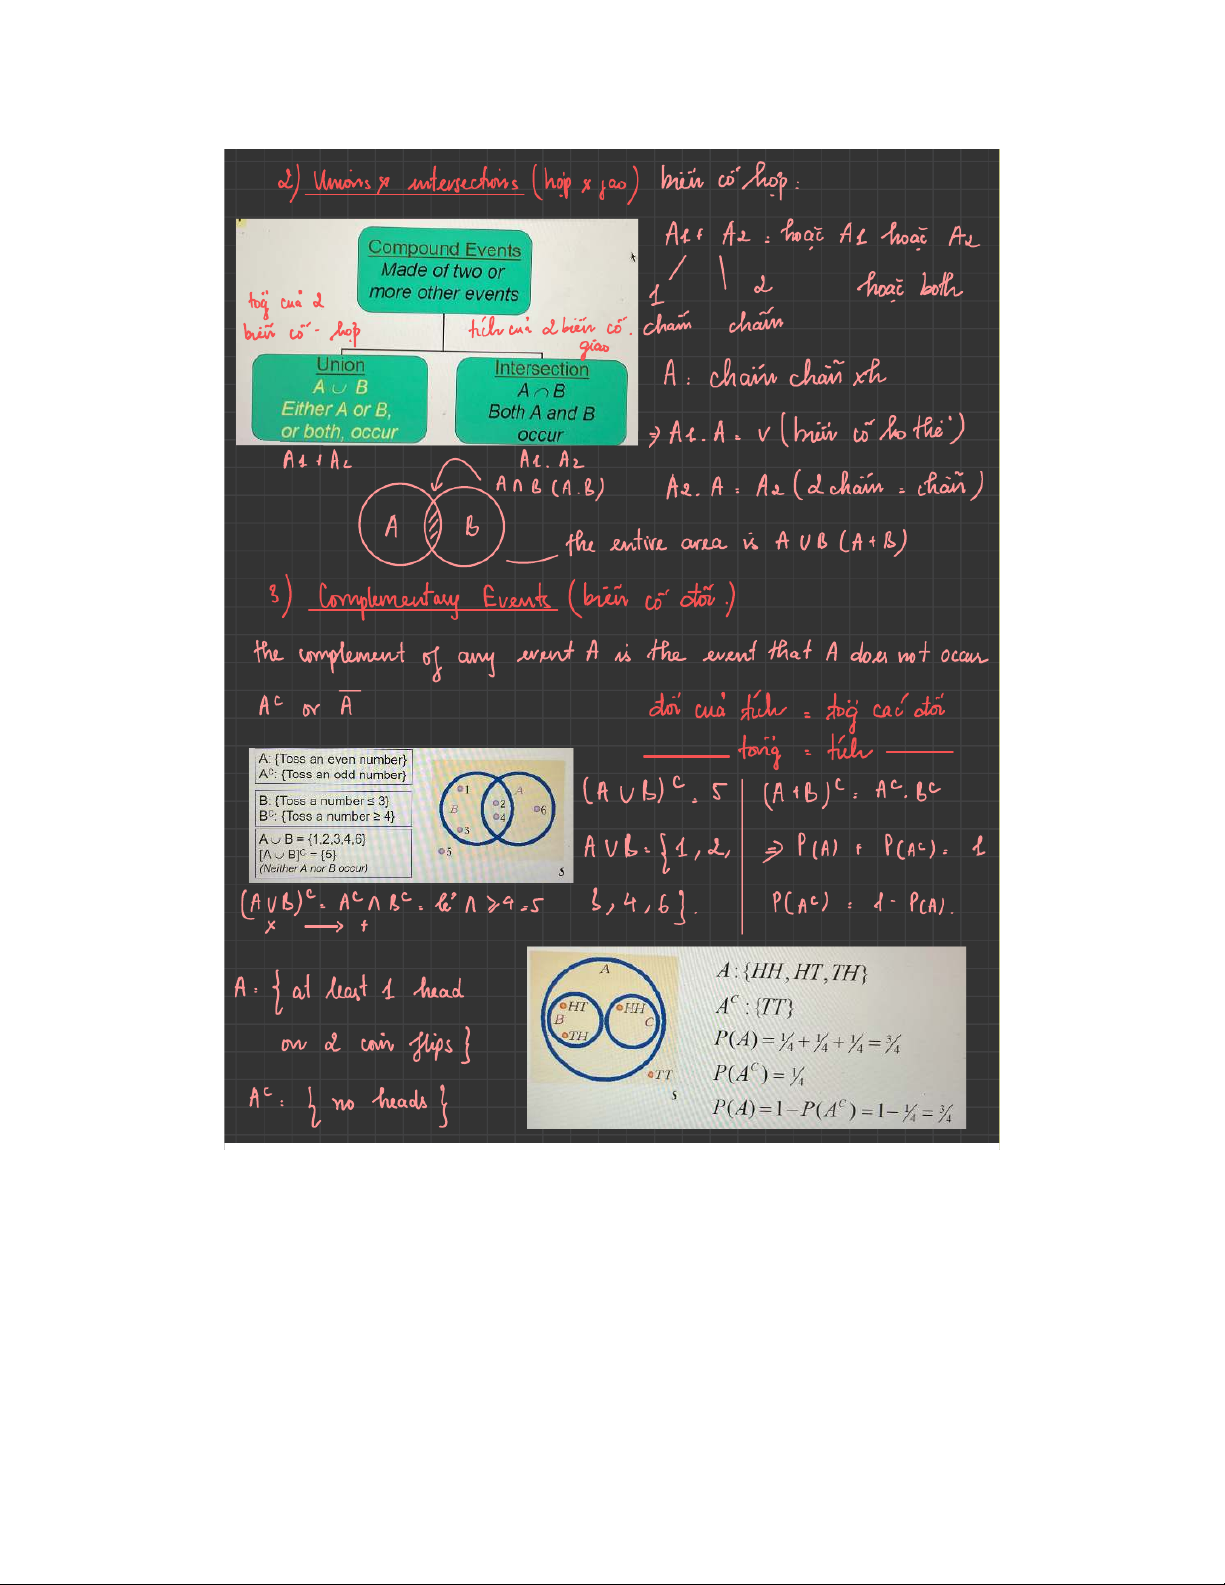 2) Unions & intersections (hợp & giao) biến cố hợp:
A1 + A2 = hoặc A1 hoặc A2
hoặc both
1 chấm 2 chấm
Compound Events
Made of two or
more other events
tổg của 2
biến cố - hợp
tích của 2 biến cố.
giao
Union
A ∪ B
Either A or B,
or both, occur
Intersection
A ∩ B
Both A and B
occur
A: chấm chẵn xh
=> A1.A = v (biến cố ko thể)
A2.A = A2 (2 chấm = chẵn)
A1 + A2
A1.A2
A ∩ B (A.B)
A
B
the entire area is A ∪ B (A+B)
3) Complementary Events (biến cố đối)
the complement of any event A is the event that A does not occur
Aᶜ or A̅
đối của tích = tổg các đối
——— tổng = tích ———
A: {Toss an even number}
Aᶜ: {Toss an odd number}
B: {Toss a number ≤ 3}
Bᶜ: {Toss a number ≥ 4}
A ∪ B = {1,2,3,4,6}
[A ∪ B]ᶜ = {5}
(Neither A nor B occur)
1
B
3
2
4
A
6
5
S
(A ∪ B)ᶜ = 5
A ∪ B = {1, 2,
3, 4, 6}.
(A+B)ᶜ = Aᶜ.Bᶜ
=> P(A) + P(Aᶜ) = 1
P(Aᶜ) = 1 - P(A).
(A ∪ B)ᶜ = Aᶜ ∩ Bᶜ = lẻ ∩ ≥4 = 5
x → +
A = { at least 1 head
on 2 coin flips }
Aᶜ = { no heads }
A
HT
B
TH
HH
C
TT
S
A : {HH, HT, TH}
Aᶜ : {TT}
P(A) = ¼ + ¼ + ¼ = ¾
P(Aᶜ) = ¼
P(A) = 1 − P(Aᶜ) = 1 − ¼ = ¾